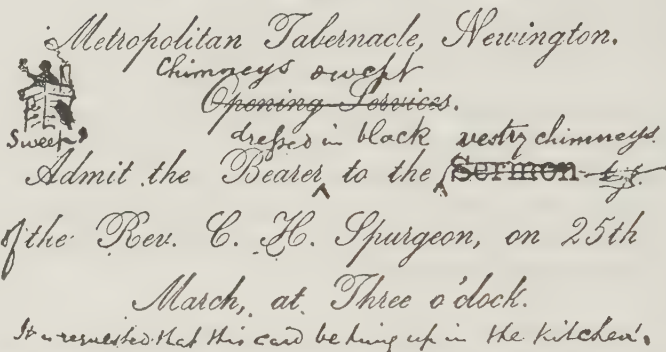 Metropolitan Tabernacle, Newington.
Chimneys swept
Opening Services.
Sweep!
dressed in black vestry chimneys.
Admit the Bearer to the Sermon by
of the Rev. C. H. Spurgeon, on 25th
March, at Three o'clock.
It is requested that this card be hung up in the Kitchen.